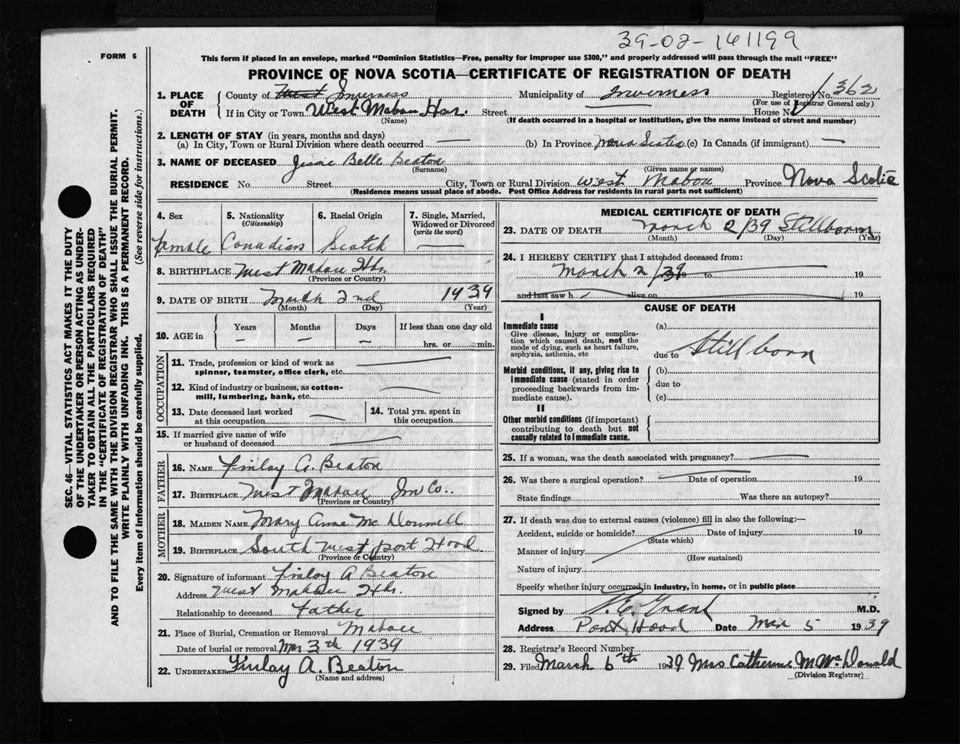 39-02-161199
FORM 6
This form if placed in an envelope, marked "Dominion Statistics—Free, penalty for improper use $300," and properly addressed will pass through the mail "FREE"
PROVINCE OF NOVA SCOTIA—CERTIFICATE OF REGISTRATION OF DEATH
SEC. 46—VITAL STATISTICS ACT MAKES IT THE DUTY
OF THE UNDERTAKER OR PERSON ACTING AS UNDER-
TAKER TO OBTAIN ALL THE PARTICULARS REQUIRED
IN THE "CERTIFICATE OF REGISTRATION OF DEATH"
AND TO FILE THE SAME WITH THE DIVISION REGISTRAR WHO SHALL ISSUE THE BURIAL PERMIT.
WRITE PLAINLY WITH UNFADING INK. THIS IS A PERMANENT RECORD.
Every item of information should be carefully supplied. (See reverse side for instructions.)
1. PLACE OF DEATH
County of Inverness Municipality of Inverness Registered No. 362
(For use of Registrar General only)
If in City or Town West Mabou Har. Street House No.
(Name) (If death occurred in a hospital or institution, give the name instead of street and number)
2. LENGTH OF STAY (in years, months and days)
(a) In City, Town or Rural Division where death occurred — (b) In Province Nova Scotia (c) In Canada (if immigrant) —
3. NAME OF DECEASED Jessie Belle Beaton
(Surname) (Given name or names)
RESIDENCE No. Street City, Town or Rural Division West Mabou Province Nova Scotia
(Residence means usual place of abode. Post Office Address for residents in rural parts not sufficient)
4. Sex 5. Nationality 6. Racial Origin 7. Single, Married,
(Citizenship) Widowed or Divorced
(write the word)
Female Canadian Scotch —
8. BIRTHPLACE West Mabou Hbr.
(Province or Country)
9. DATE OF BIRTH March 2nd 1939
(Month) (Day) (Year)
10. AGE in Years Months Days If less than one day old
— — — hrs. or min.
OCCUPATION
11. Trade, profession or kind of work as
spinner, teamster, office clerk, etc. —
12. Kind of industry or business, as cotton-
mill, lumbering, bank, etc. —
13. Date deceased last worked
at this occupation —
14. Total yrs. spent in
this occupation
15. If married give name of wife
or husband of deceased —
FATHER
16. NAME Finlay A. Beaton
17. BIRTHPLACE West Mabou Inv Co..
(Province or Country)
MOTHER
18. MAIDEN NAME Mary Anne Mc Donnell
19. BIRTHPLACE South West Port Hood
(Province or Country)
20. Signature of informant Finlay A Beaton
Address West Mabou Hbr.
Relationship to deceased Father
21. Place of Burial, Cremation or Removal Mabou
Date of burial or removal Mar 3th 1939
22. UNDERTAKER Finlay A. Beaton
(Name and address)
MEDICAL CERTIFICATE OF DEATH
23. DATE OF DEATH March 2/39 Stillborn
(Month) (Day) (Year)
24. I HEREBY CERTIFY that I attended deceased from:
March 2/39 to 19
and last saw h alive on 19
CAUSE OF DEATH
I
Immediate cause
Give disease, injury or complica-
tion which caused death, not the
mode of dying, such as heart failure,
asphyxia, asthenia, etc
(a)
due to Stillborn
Morbid conditions, if any, giving rise to
immediate cause (stated in order
proceeding backwards from im-
mediate cause).
(b)
due to
(c)
II
Other morbid conditions (if important)
contributing to death but not
causally related to immediate cause.
25. If a woman, was the death associated with pregnancy? —
26. Was there a surgical operation? Date of operation 19
State findings Was there an autopsy?
27. If death was due to external causes (violence) fill in also the following:—
Accident, suicide or homicide? Date of injury 19
(State which)
Manner of injury
(How sustained)
Nature of injury
Specify whether injury occurred in industry, in home, or in public place
Signed by Grant M.D.
Address Port Hood Date Mar 5 1939
28. Registrar's Record Number
29. Filed March 6th 1939 Mrs Catherine M. McDonald
(Division Registrar)